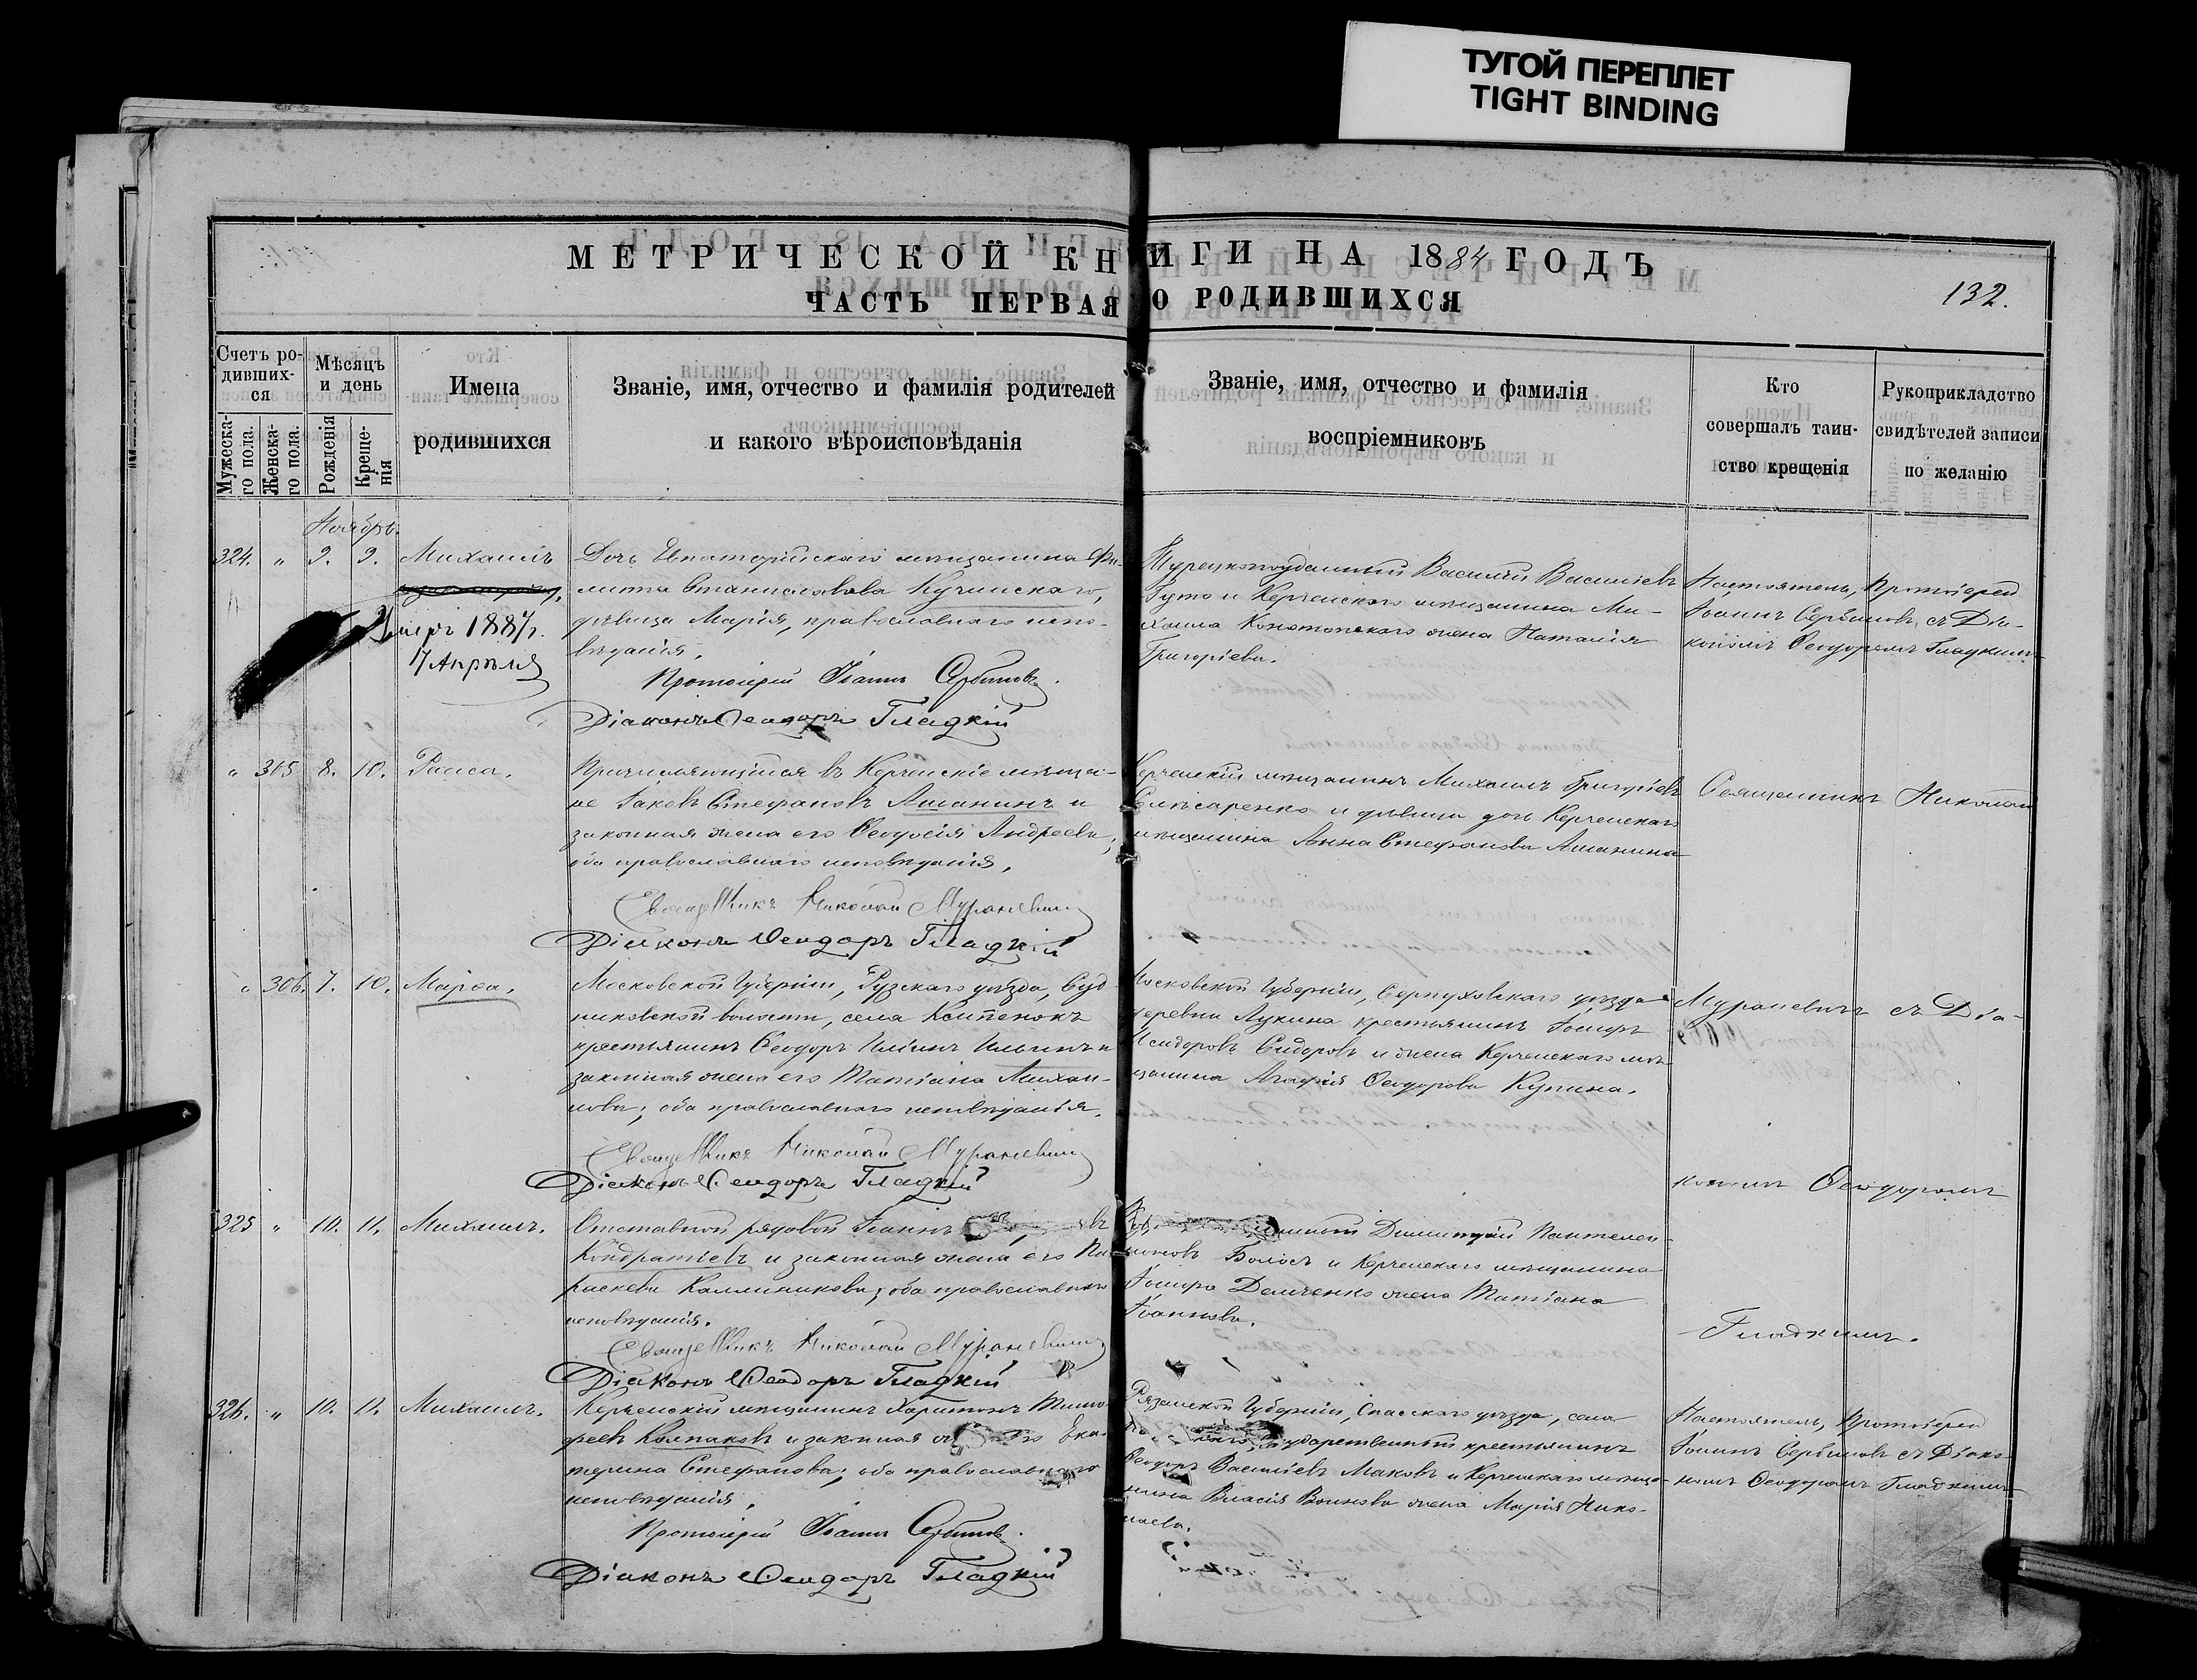 ТУГОЙ ПЕРЕПЛЕТ
TIGHT BINDING
МЕТРИЧЕСКОЙ КНИГИ НА 1884 ГОДЪ
ЧАСТЬ ПЕРВАЯ О РОДИВШИХСЯ
132.
Счетъ ро-
дивших-
ся
Мужеска-
го пола.
Женска-
го пола.
Мѣсяцъ
и день
Рожденія
Креще-
нія
Имена
родившихся
Званіе, имя, отчество и фамилія родителей
и какого вѣроисповѣданія
Званіе, имя, отчество и фамилія
воспріемниковъ
Кто
совершалъ таин-
ство крещенія
Рукоприкладство
свидѣтелей записи
по желанію
Ноябрь.
324. " 2. 9. Михаилъ
умеръ 1887 г.
17 Апрѣля
Дочь Евпаторійскаго мѣщанина Фи-
липа Станиславова Кучинскаго,
дѣвица Марія, православнаго испо-
вѣданія.
Протоіерей Іоаннъ Сербиновъ.
Діаконъ Ѳеодоръ Гладкій
Турецкоподданный Василій Васильевъ
и Керченскаго мѣщанина Ми-
хаила жена Наталія
Григорьева.
Настоятель, Протоіерей
Іоаннъ Сербиновъ, съ Діа-
кономъ Ѳеодоромъ Гладкимъ
" 305 8. 10. Раиса.
Причисляющійся въ Керченскіе мѣща-
не Іаковъ Стефановъ Ашанинъ и
законная жена его Ѳеодосія Андреева,
оба православнаго исповѣданія.
Священникъ Николай Мураневичъ
Діаконъ Ѳеодоръ Гладкій
Керченскій мѣщанинъ Михаилъ Григорьевъ
Слѣсаренко и дѣвица дочь Керченскаго
мѣщанина Анна Стефанова Ашанина
Священникъ Николай
" 306. 7. 10. Марѳа.
Московской Губерніи, Рузскаго уѣзда, Суд-
никовской волости, села
крестьянинъ Ѳеодоръ Ильинъ Ильинъ и
законная жена его Татіана Михаи-
лова; оба православнаго исповѣданія.
Священникъ Николай Мураневичъ
Діаконъ Ѳеодоръ Гладкій
Московской Губерніи, Серпуховскаго уѣзда
деревни Лукина крестьянинъ Іосифъ
Исидоровъ Сидоровъ и жена Керченскаго мѣ-
щанина Агафія Ѳеодорова Купина.
Мураневичъ съ Діа-
кономъ Ѳеодоромъ
325 " 10. 11. Михаилъ.
Отставной рядовой Іоаннъ
Кондратьевъ и законная жена его Па-
раскева Каллиникова; оба православнаго
исповѣданія.
Священникъ Николай Мураневичъ
Діаконъ Ѳеодоръ Гладкій
Димитрій Пантелеи-
моновъ и Керченскаго мѣщанина
Іосифа Демченко жена Татіана
Іоаннова.
Гладкимъ.
326. " 10. 11. Михаилъ.
Керченскій мѣщанинъ Харитонъ Тимо-
феевъ Колпаковъ и законная его Ека-
терина Стефанова; оба православнаго
исповѣданія.
Протоіерей Іоаннъ Сербиновъ.
Діаконъ Ѳеодоръ Гладкій
Рязанской Губерніи, Спасскаго уѣзда, села
государственный крестьянинъ
Ѳеодоръ Васильевъ Маковъ и Керченскаго мѣща-
нина Власія Воинова жена Марія Нико-
лаева.
Настоятель, Протоіерей
Іоаннъ Сербиновъ съ Діако-
номъ Ѳеодоромъ Гладкимъ